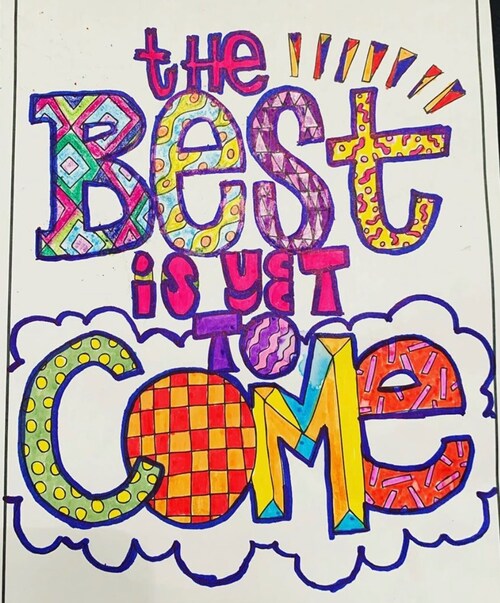 the
Best
is yet
to
Come